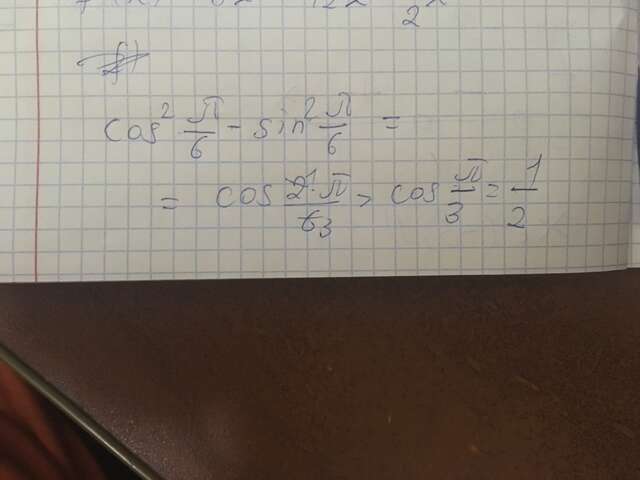 cos² π/6 - sin² π/6 =
= cos 2π/6 3 = cos π/3 = 1/2